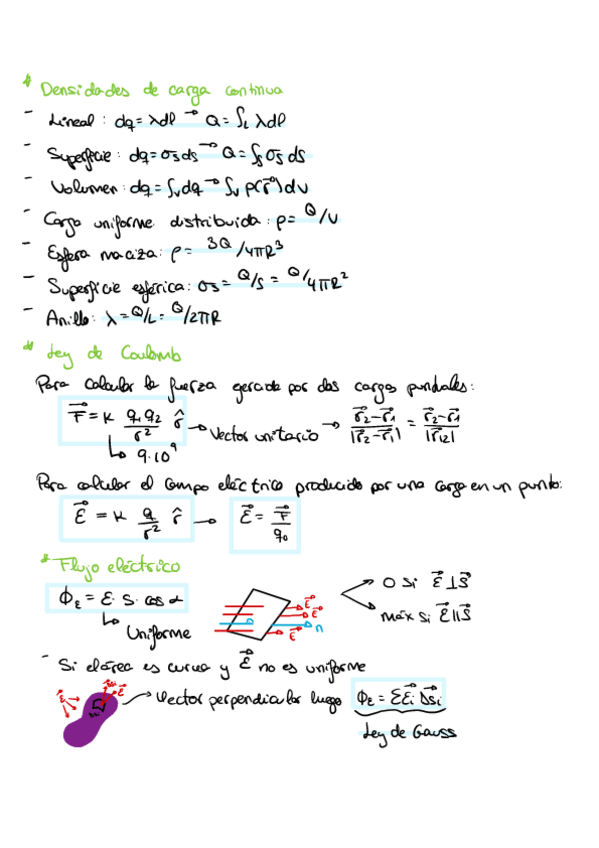 * Densidades de carga continua
- Lineal : dq = λdl → Q = ∫L λdl
- Superficie : dq = σs ds → Q = ∫s σs ds
- Volumen : dq = ∫v dq → ∫v ρ(r⃗) dv
- Carga uniforme distribuida : ρ = Q/V
- Esfera maciza : ρ = 3Q/4πR³
- Superficie esférica : σs = Q/S = Q/4πR²
- Anillo : λ = Q/L = Q/2πR
* Ley de Coulomb
Para calcular la fuerza gerada por dos cargas puntales :
F⃗ = K q₁q₂/r² r̂ → Vector unitario → r⃗₂-r⃗₁/|r⃗₂-r⃗₁| = r⃗₂-r⃗₁/|r⃗₁₂|
↳ 9·10⁹
Para calcular el campo eléctrico producido por una carga en un punto:
E⃗ = K q/r² r̂ → E⃗ = F⃗/q₀
* Flujo eléctrico
ΦE = E · S · cos α
↳ Uniforme
E⃗
E⃗
n
E⃗
0 si E⃗ ⊥ S⃗
máx si E⃗ || S⃗
- Si el área es curva y E⃗ no es uniforme
E⃗
E⃗
→ Vector perpendicular luego ΦE = ΣE⃗i Δs⃗i
Ley de Gauss